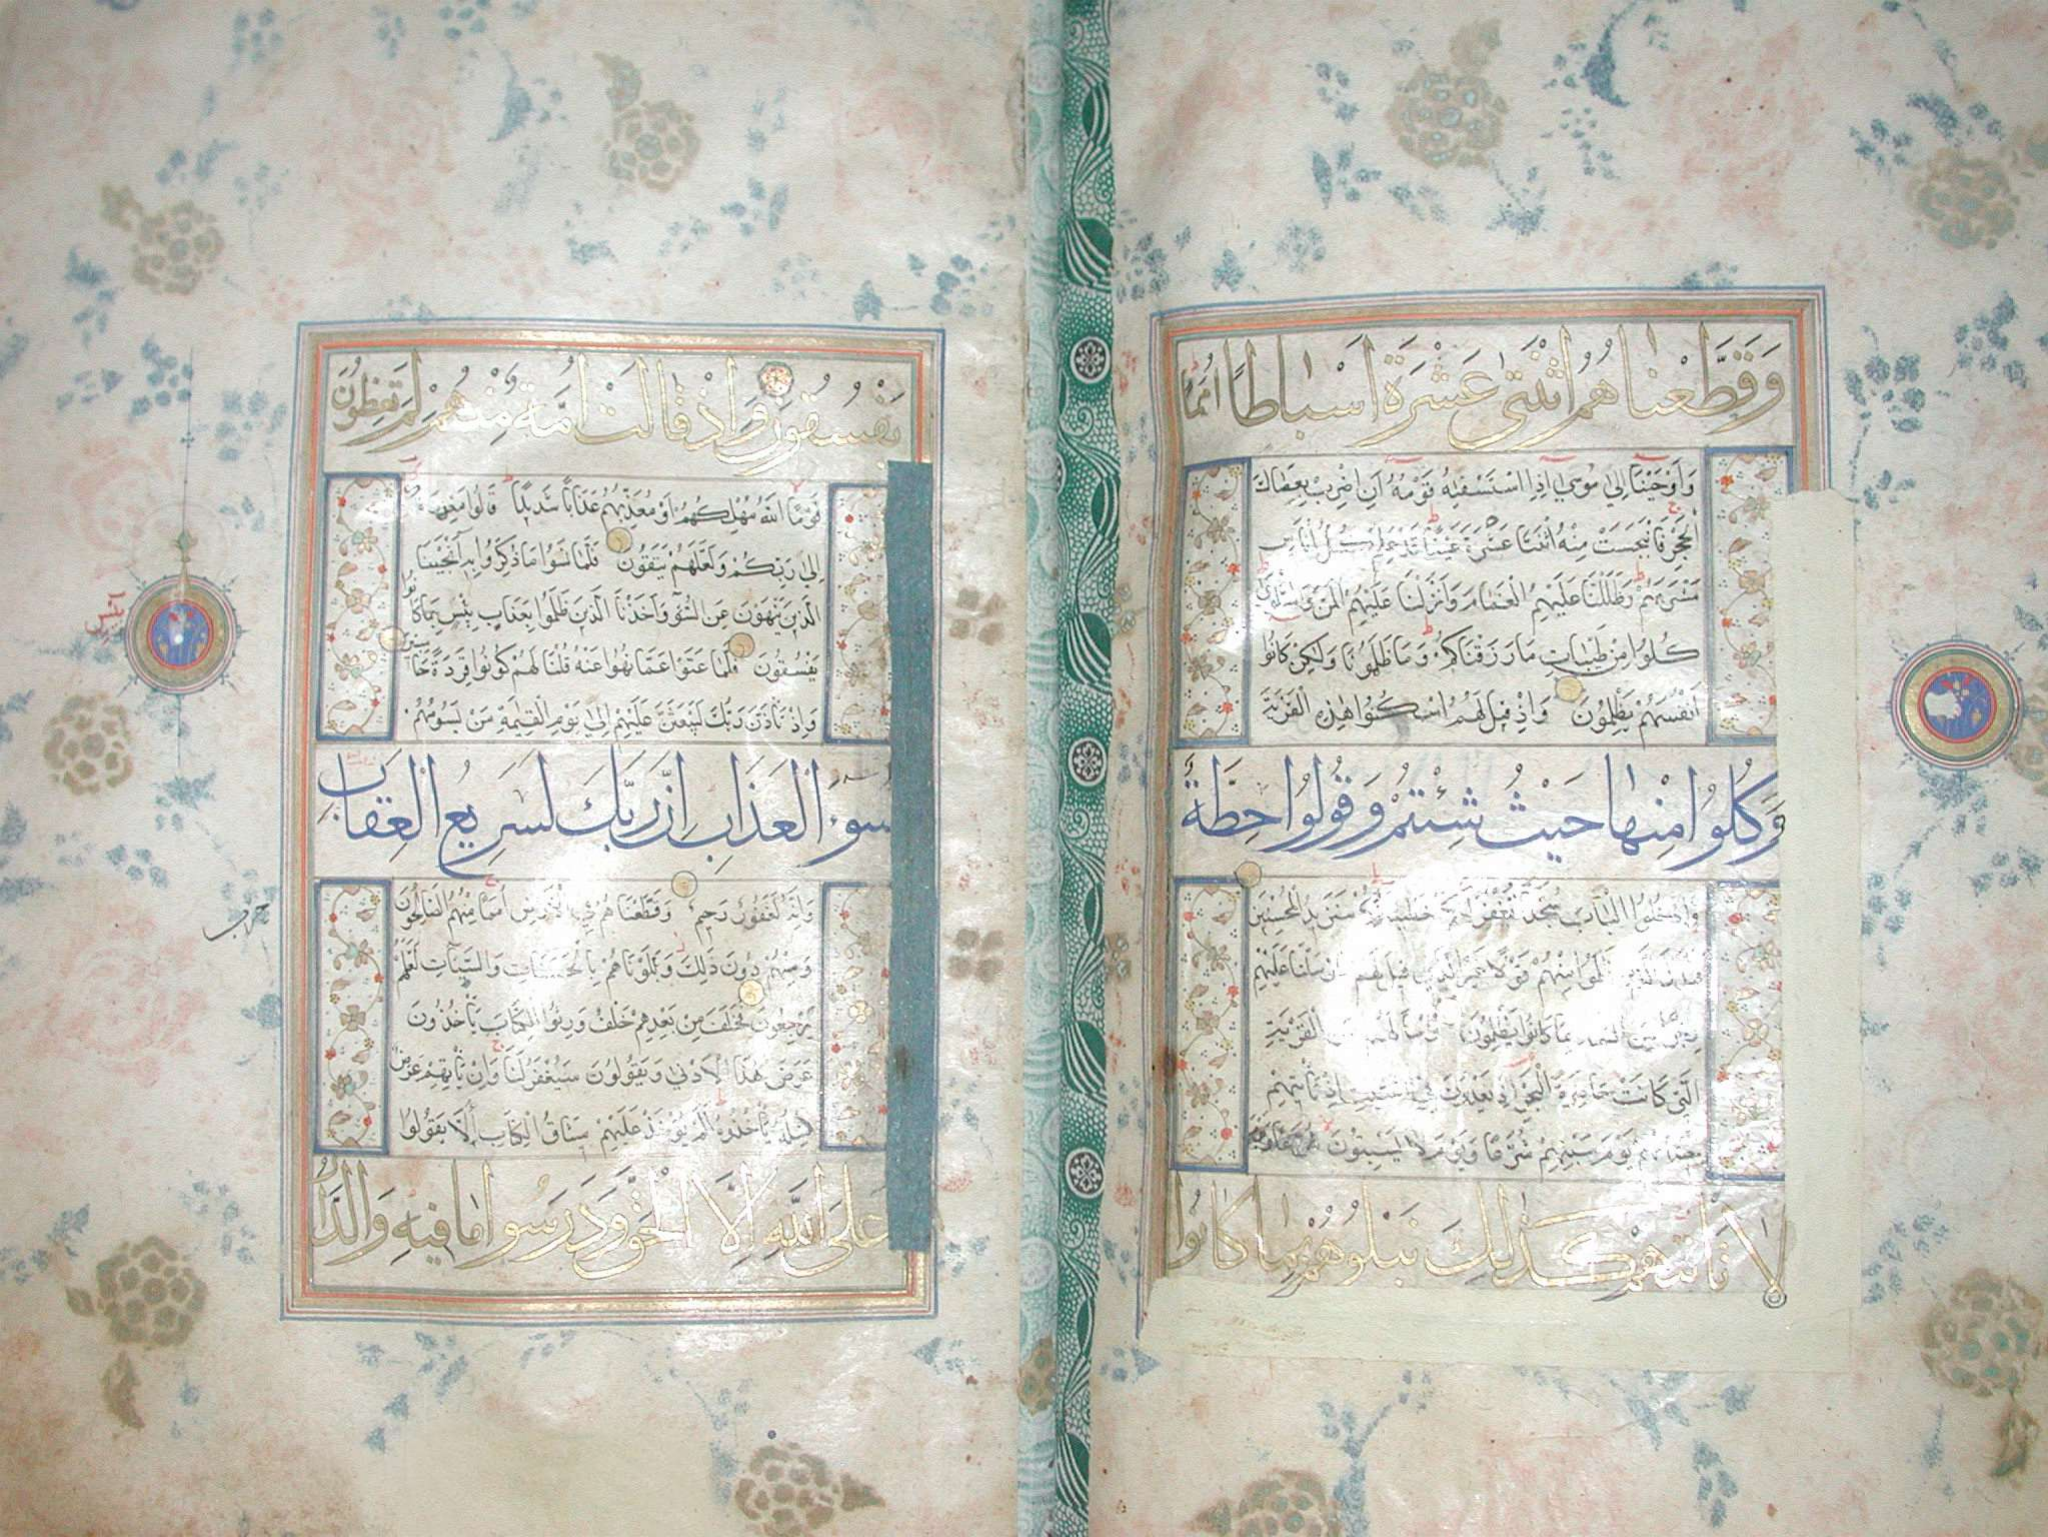 وَقَطَّعْنَاهُمُ اثْنَتَىْ عَشْرَةَ اَسْبَاطًا اُمَمًا
وَاَوْحَيْنَا اِلىٰ مُوسٰى اِذِ اسْتَسْقٰيهُ قَوْمُهُ اَنِ اضْرِبْ بِعَصَاكَ
الْحَجَرَ فَانْبَجَسَتْ مِنْهُ اثْنَتَا عَشْرَةَ عَيْنًا قَدْ عَلِمَ كُلُّ اُنَاسٍ
مَشْرَبَهُمْ وَظَلَّلْنَا عَلَيْهِمُ الْغَمَامَ وَاَنْزَلْنَا عَلَيْهِمُ الْمَنَّ وَالسَّلْوٰى
كُلُوا مِنْ طَيِّبَاتِ مَا رَزَقْنَاكُمْ وَمَا ظَلَمُونَا وَلٰكِنْ كَانُوا
اَنْفُسَهُمْ يَظْلِمُونَ وَاِذْ قِيلَ لَهُمُ اسْكُنُوا هٰذِهِ الْقَرْيَةَ
وَكُلُوا مِنْهَا حَيْثُ شِئْتُمْ وَقُولُوا حِطَّةٌ
وَادْخُلُوا الْبَابَ سُجَّدًا نَغْفِرْ لَكُمْ سَنَزِيدُ الْمُحْسِنِينَ
ظَلَمُوا مِنْهُمْ قَوْلًا غَيْرَ الَّذِي قِيلَ لَهُمْ فَاَرْسَلْنَا عَلَيْهِمْ
رِجْزًا مِنَ السَّمَاءِ بِمَا كَانُوا يَظْلِمُونَ الْقَرْيَةِ
الَّتِي كَانَتْ حَاضِرَةَ الْبَحْرِ اِذْ يَعْدُونَ فِي السَّبْتِ اِذْ تَأْتِيهِمْ
حِيتَانُهُمْ يَوْمَ سَبْتِهِمْ شُرَّعًا وَيَوْمَ لَا يَسْبِتُونَ
لَا تَأْتِيهِمْ كَذٰلِكَ نَبْلُوهُمْ بِمَا كَانُوا
يَفْسُقُونَ وَاِذْ قَالَتْ اُمَّةٌ مِنْهُمْ لِمَ تَعِظُونَ
قَوْمًا اللّٰهُ مُهْلِكُهُمْ اَوْ مُعَذِّبُهُمْ عَذَابًا شَدِيدًا قَالُوا مَعْذِرَةً
اِلىٰ رَبِّكُمْ وَلَعَلَّهُمْ يَتَّقُونَ فَلَمَّا نَسُوا مَا ذُكِّرُوا بِهِ اَنْجَيْنَا
الَّذِينَ يَنْهَوْنَ عَنِ السُّوءِ وَاَخَذْنَا الَّذِينَ ظَلَمُوا بِعَذَابٍ بَئِيسٍ بِمَا كَانُوا
يَفْسُقُونَ فَلَمَّا عَتَوْا عَمَّا نُهُوا عَنْهُ قُلْنَا لَهُمْ كُونُوا قِرَدَةً خَاسِئِينَ
وَاِذْ تَاَذَّنَ رَبُّكَ لَيَبْعَثَنَّ عَلَيْهِمْ اِلىٰ يَوْمِ الْقِيٰمَةِ مَنْ يَسُومُهُمْ
سُوءَ الْعَذَابِ اِنَّ رَبَّكَ لَسَرِيعُ الْعِقَابِ
وَاِنَّهُ لَغَفُورٌ رَحِيمٌ وَقَطَّعْنَاهُمْ فِي الْاَرْضِ اُمَمًا مِنْهُمُ الصَّالِحُونَ
وَمِنْهُمْ دُونَ ذٰلِكَ وَبَلَوْنَاهُمْ بِالْحَسَنَاتِ وَالسَّيِّئَاتِ لَعَلَّهُمْ
يَرْجِعُونَ فَخَلَفَ مِنْ بَعْدِهِمْ خَلْفٌ وَرِثُوا الْكِتَابَ يَأْخُذُونَ
عَرَضَ هٰذَا الْاَدْنٰى وَيَقُولُونَ سَيُغْفَرُ لَنَا وَاِنْ يَأْتِهِمْ عَرَضٌ
مِثْلُهُ يَأْخُذُوهُ اَلَمْ يُؤْخَذْ عَلَيْهِمْ مِيثَاقُ الْكِتَابِ اَنْ لَا يَقُولُوا
عَلَى اللّٰهِ اِلَّا الْحَقَّ وَدَرَسُوا مَا فِيهِ وَالدَّارُ